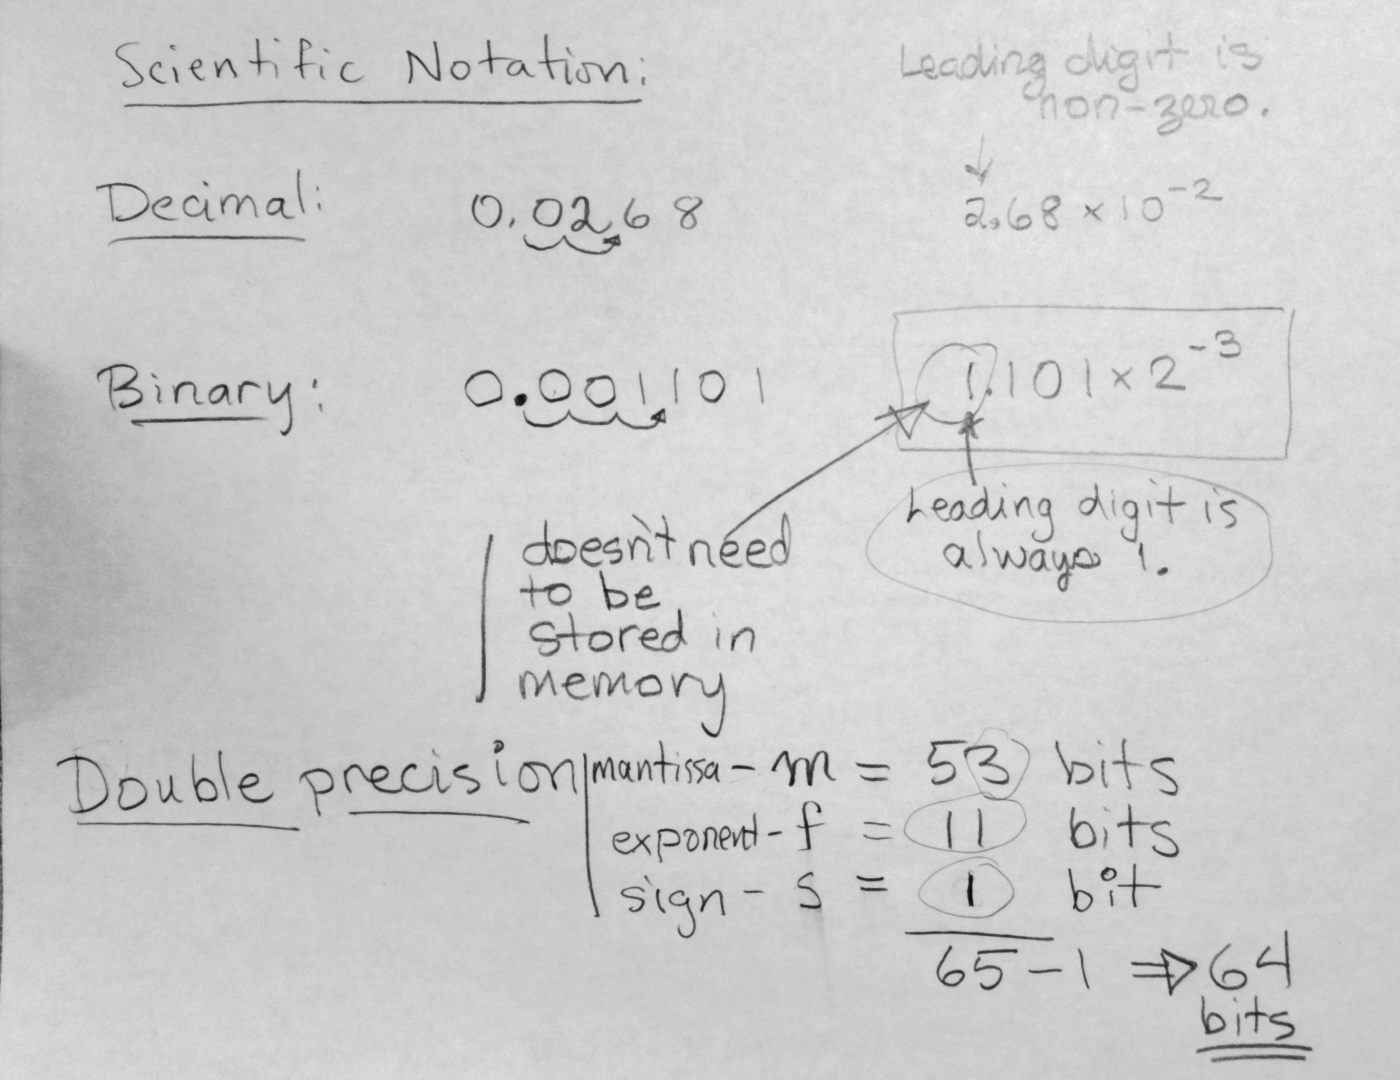 Scientific Notation:
Leading digit is
non-zero.
Decimal: 0.0268 2.68 × 10⁻²
Binary: 0.001101 1.101 × 2⁻³
Leading digit is
always 1.
doesn't need
to be
stored in
memory
Double precision mantissa - m = 53 bits
exponent - f = 11 bits
sign - s = 1 bit
65 - 1 ⇒ 64
bits